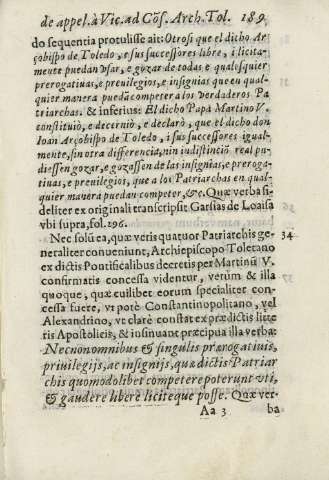 de appel. à Vic. ad Cōs. Arch. Tol. 189
do sequentia protulisse ait: Otrosi que el dicho Ar
çobispo de Toledo, e sus successores libre, i licita-
mente puedan vsar, e gozar de todas e qualesquier
prerogatiuas, e preuilegios, e insignias que en qual
quier manera puedā competer a los verdaderos Pa
triarchas. & inferius: El dicho Papa Martino V.
constituiò, e decarniò, e declarò, que el dicho don
Ioan Arçobispo de Toledo, i sus successores igual-
mente, sin otra differencia, nin indistinciō real pu-
diessen gozar, e gozassen de las insignias, e preroga-
tiuas, e preuilegios, que a los Patriarchas en qual-
quier manera puedan competer, &c. Quæ verba fi-
deliter ex originali transcripsit Garsias de Loaisa
vbi supra, fol. 296.
Nec solū ea, quæ veris quatuor Patriarchis ge- 34
neraliter conueniunt, Archiepiscopo Toletano
ex dictis Pontificalibus decretis per Martinū V.
confirmatis concessa videntur, verūm & illa
quoque, quæ cuilibet eorum specialiter con-
cessa fuere, vt potè Constantinopolitano, vel
Alexandrino, vt clarè constat ex prædictis litte
ris Apostolicis, & insinuant præcipua illa verba:
Necnon omnibus & singulis prærogatiuis,
priuilegijs, ac insignijs, quæ dictis Patriar
chis quomodolibet competere poterunt vti,
& gaudere liberè licitè que posse. Quæ ver-
Aa 3 ba